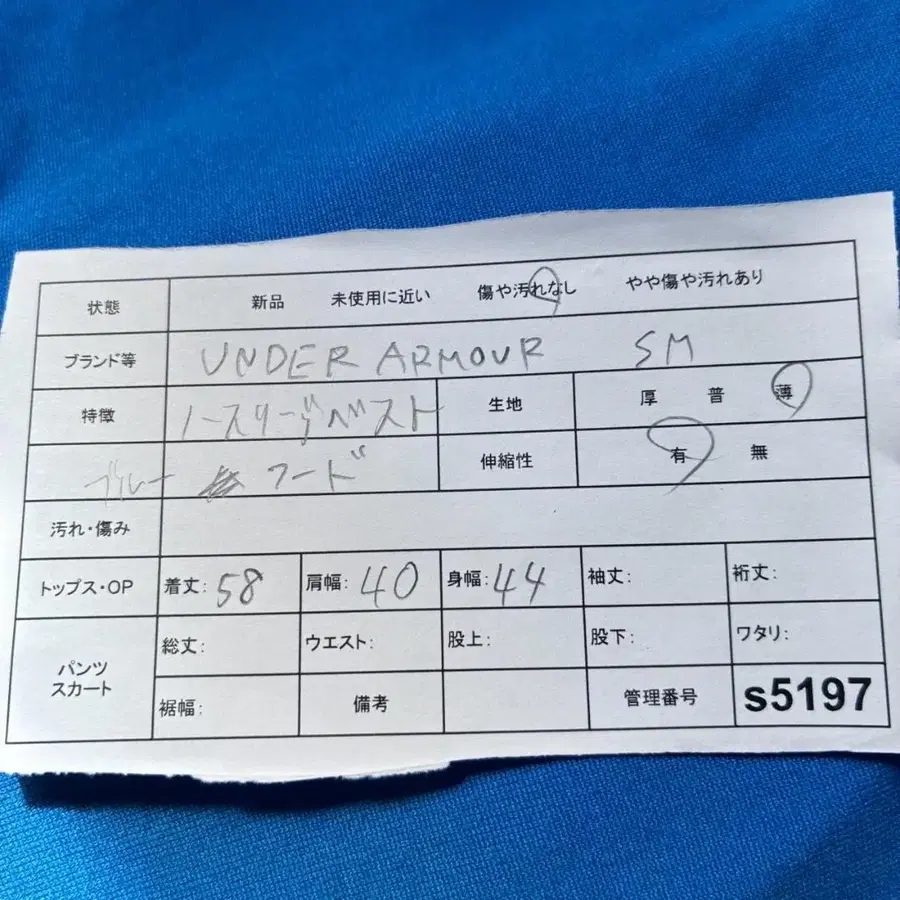 状態 新品 未使用に近い 傷や汚れなし やや傷や汚れあり
ブランド等 UNDER ARMOUR SM
特徴 ノースリーブベスト 生地 厚 普 薄
ブルー フード 伸縮性 有 無
汚れ・傷み
トップス・OP 着丈: 58 肩幅: 40 身幅: 44 袖丈: 裄丈:
パンツ スカート 総丈: ウエスト: 股上: 股下: ワタリ:
裾幅: 備考 管理番号 s5197